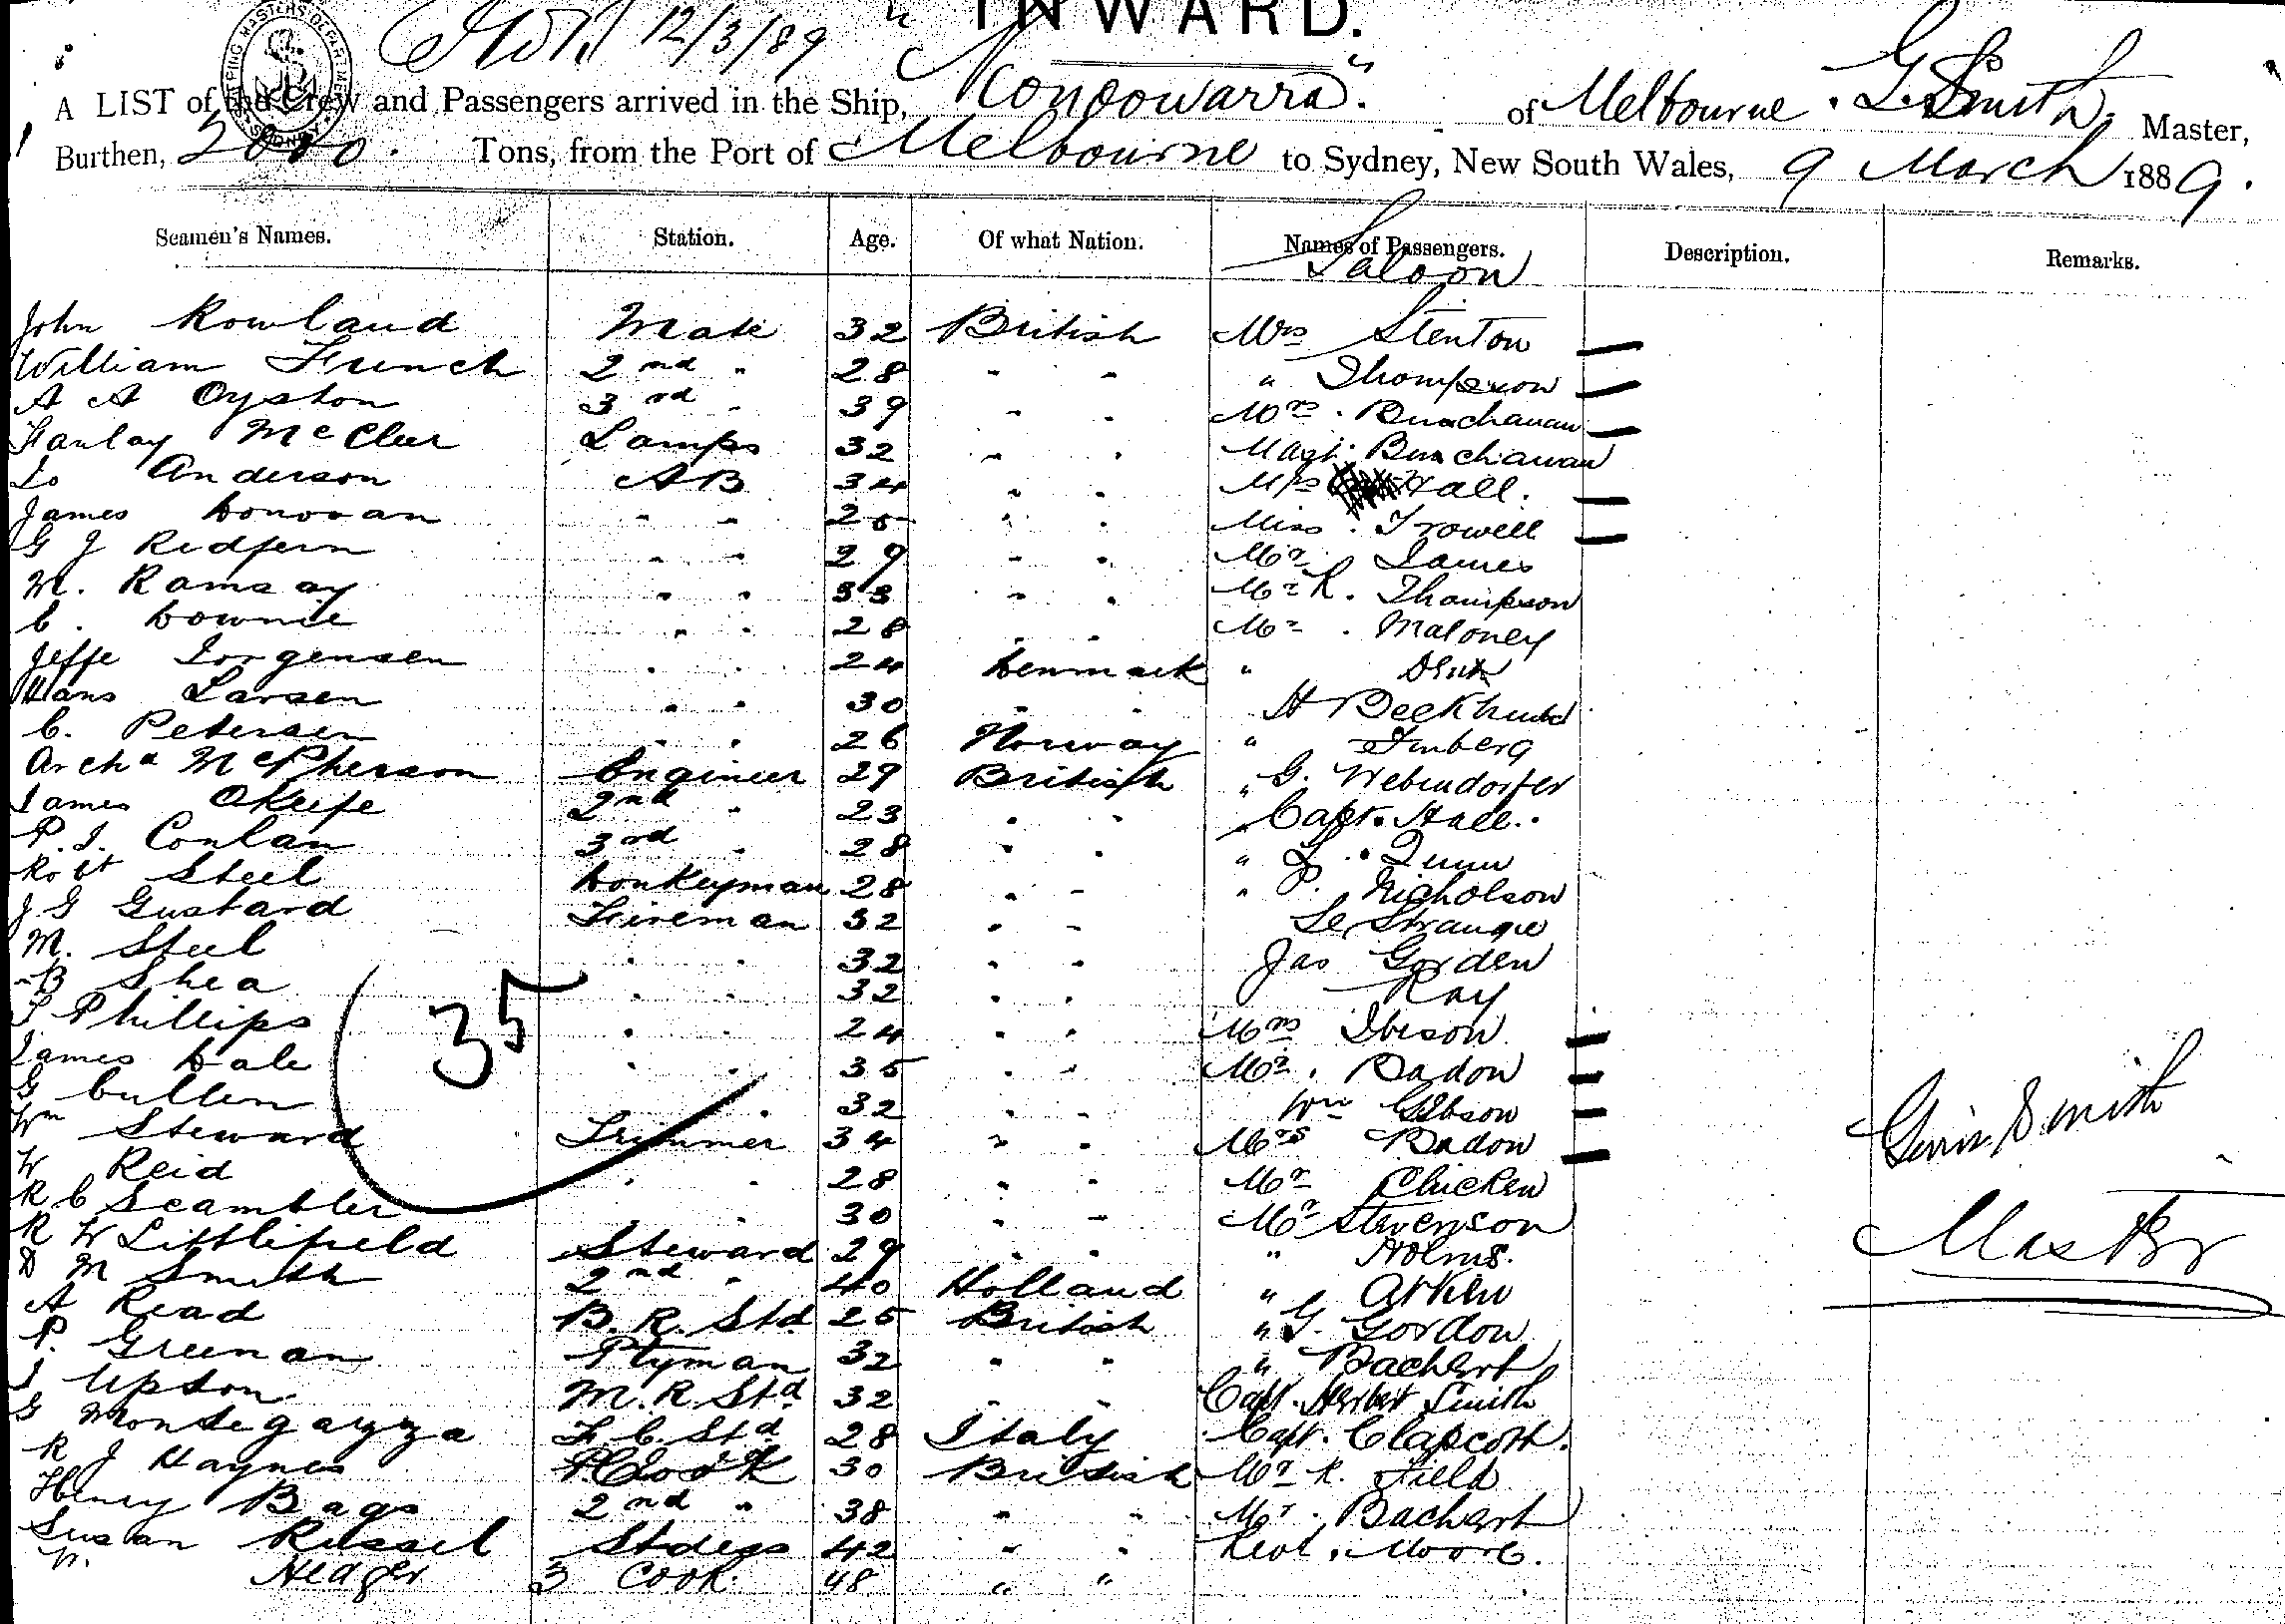 INWARD.
12/3/89
A LIST of the Crew and Passengers arrived in the Ship, "Konoowarra". of Melbourne. G. Smith, Master,
Burthen, Tons, from the Port of Melbourne to Sydney, New South Wales, 9 March 1889.
Seamen's Names. Station. Age. Of what Nation. Names of Passengers. Description. Remarks.
Saloon
John Rowland Mate 32 British Mrs Stenton
William French 2nd " 28 " " " Thompson
A A Oyston 3rd " 39 " " Mrs. Buachanan
McCleer Lamps 32 " " Buachanan
Anderson AB 34 " " Mrs Hall.
James Donovan " " 25 " " Miss. Trowell
G J Redfern " " 29 " " Mr. James
M. Ramsay " " 33 " " Mr R. Thompson
C. Downie " " 28 " " Mr. Maloney
Jeffe Jorgensen " " 24 Denmark " Dent
Hans Larsen " " 30 " " H
C. Petersen " " 26 Norway "
Archd McPherson Engineer 29 British " G. Webendorfer
James OKeefe 2nd " 23 " " " Capt. Hall.
P. J. Conlan 3rd " 28 " " " L. Quinn
Robt Steel Donkeyman 28 " " " P. Nicholson
J G Gustard Fireman 32 " " Le Strange
M. Steel " " 32 " " Jas Gorden
B Shea " " 32 " " Ray
35
J Phillips " " 24 " " Mrs Ibeson
James Dale " " 35 " " Mr. Badon
G Cullen " 32 " " Wm Gibson
Wm Steward Trimmer 34 " " Mrs Badon
W Reid " " 28 " " Mr Chicken
R C Scambler " 30 " " Mr Stevenson
R W Littlefield Steward 29 " " " Holms.
D M Smith 2nd " 40 Holland " Arken
A Read B. R. Std 25 British " G. Gordon
P. Greenan Ptyman 32 " " " Bachert
J Upton M. R Std 32 " " Capt. Herbert Smith
G Montegazza F. C. Std 28 Italy Capt. Clapcott.
R J Haynes Cook 30 British Mr R. Field
Henry Bags 2nd " 38 " " Mr. Bachert
Susan Russel Stdess 42 " " Moore.
W. Hedger 3 Cook 48 " "
Smith
Master